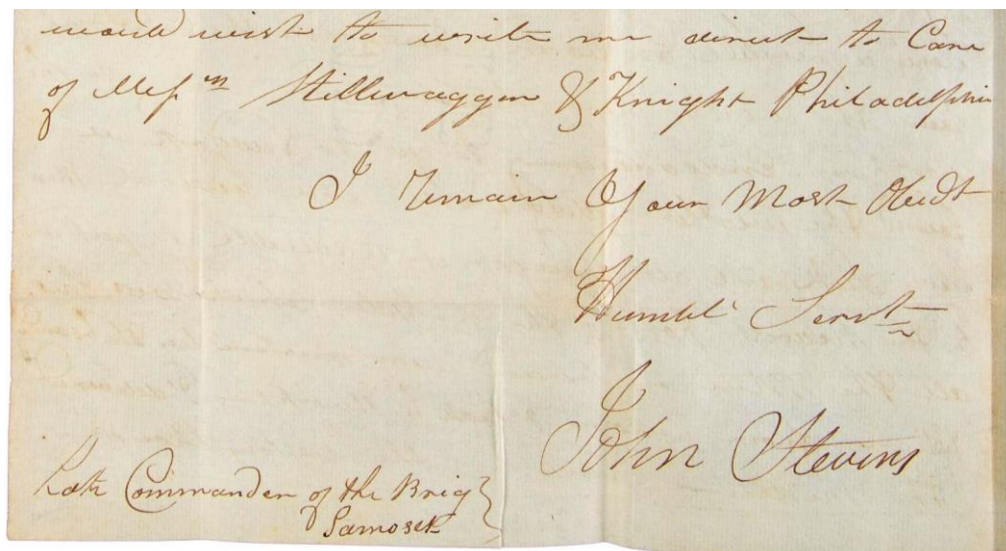 would wish to write me direct to Care
of Messrs Stillwaggon & Knight Philadelphia
I remain Your Most Obedt
Humble Servt
John Stevens
Late Commander of the Brig
Samoset